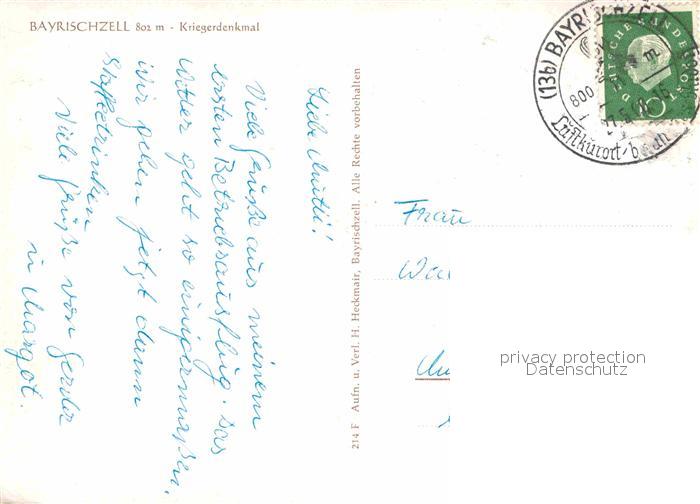 BAYRISCHZELL 802 m - Kriegerdenkmal
Liebe Mutti!
Viele Grüße aus meinem
ersten Betriebsausflug. Das
Wetter geht so einigermaßen.
Wir gehen jetzt dann
Kaffeetrinken
Viele Grüße von Gerda
u Margot.
214 F Aufn. u. Verl. H. Heckmair, Bayrischzell. Alle Rechte vorbehalten
(13b) BAYRISCHZELL
800 m
Luftkurort
DEUTSCHE BUNDESPOST
10
Frau
privacy protection
Datenschutz